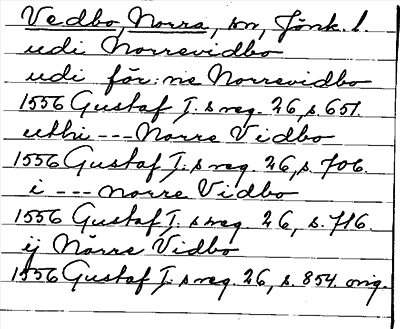 Vedbo, Norra, sn, Jönk. l.
udi Norrevidbo
udi för:ne Norrevidbo
1556 Gustaf I:s reg. 26, s. 651.
uthi --- Norre Vidbo
1556 Gustaf I:s reg. 26, s. 706.
i --- norre Vidbo
1556 Gustaf I:s reg. 26, s. 716.
ij Nörre Vidbo
1556 Gustaf I:s reg. 26, s. 854. orig.